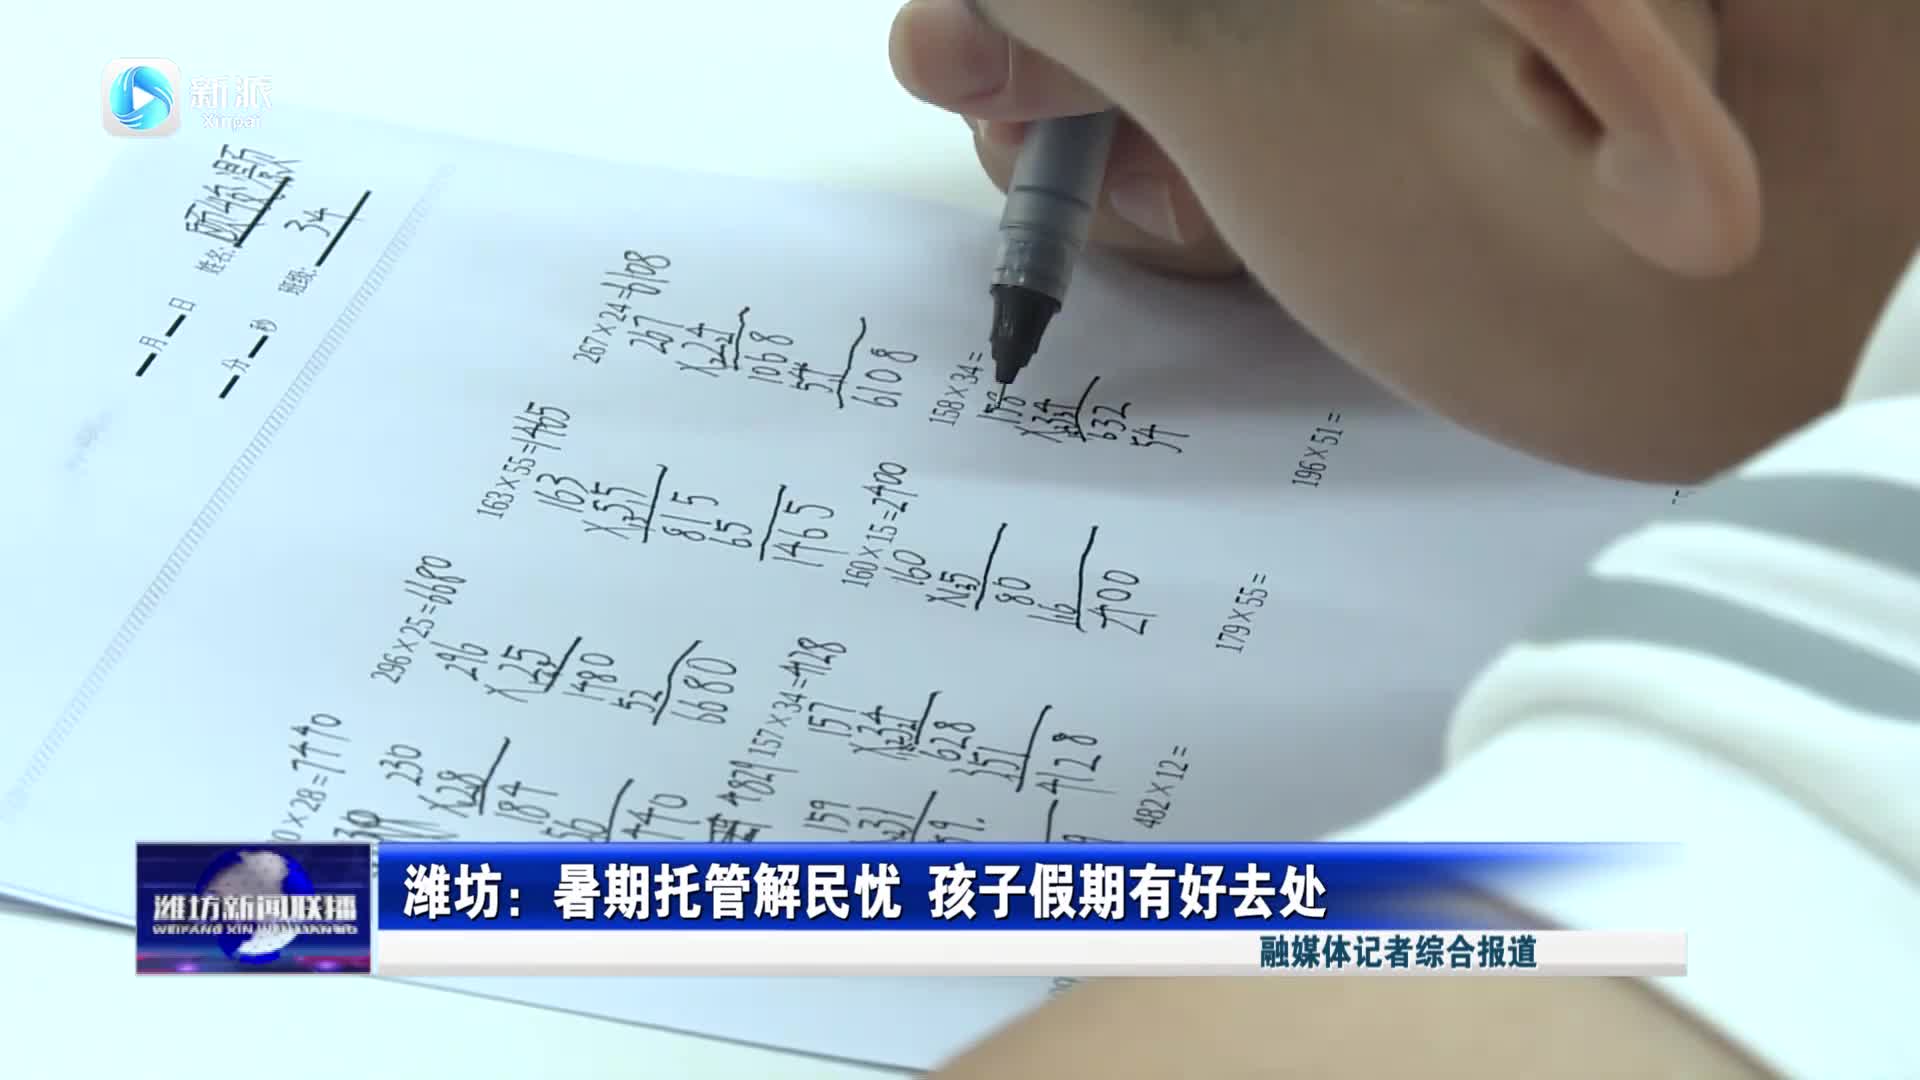 新派
Xinpai
姓名:
班级: 34
月 日
分 秒
267×24=6108
267
×24
1068
54
6108
158×34=
158
×34
632
54
196×51=
163×55=1465
163
×55
815
65
1465
160×15=2400
160
×15
80
16
2400
179×55=
296×25=6680
296
×25
1480
52
6680
157×34=4128
157
×34
628
351
4128
482×12=
0×28=7440
230
×28
184
56
440
159
潍坊新闻联播
潍坊：暑期托管解民忧 孩子假期有好去处
融媒体记者综合报道